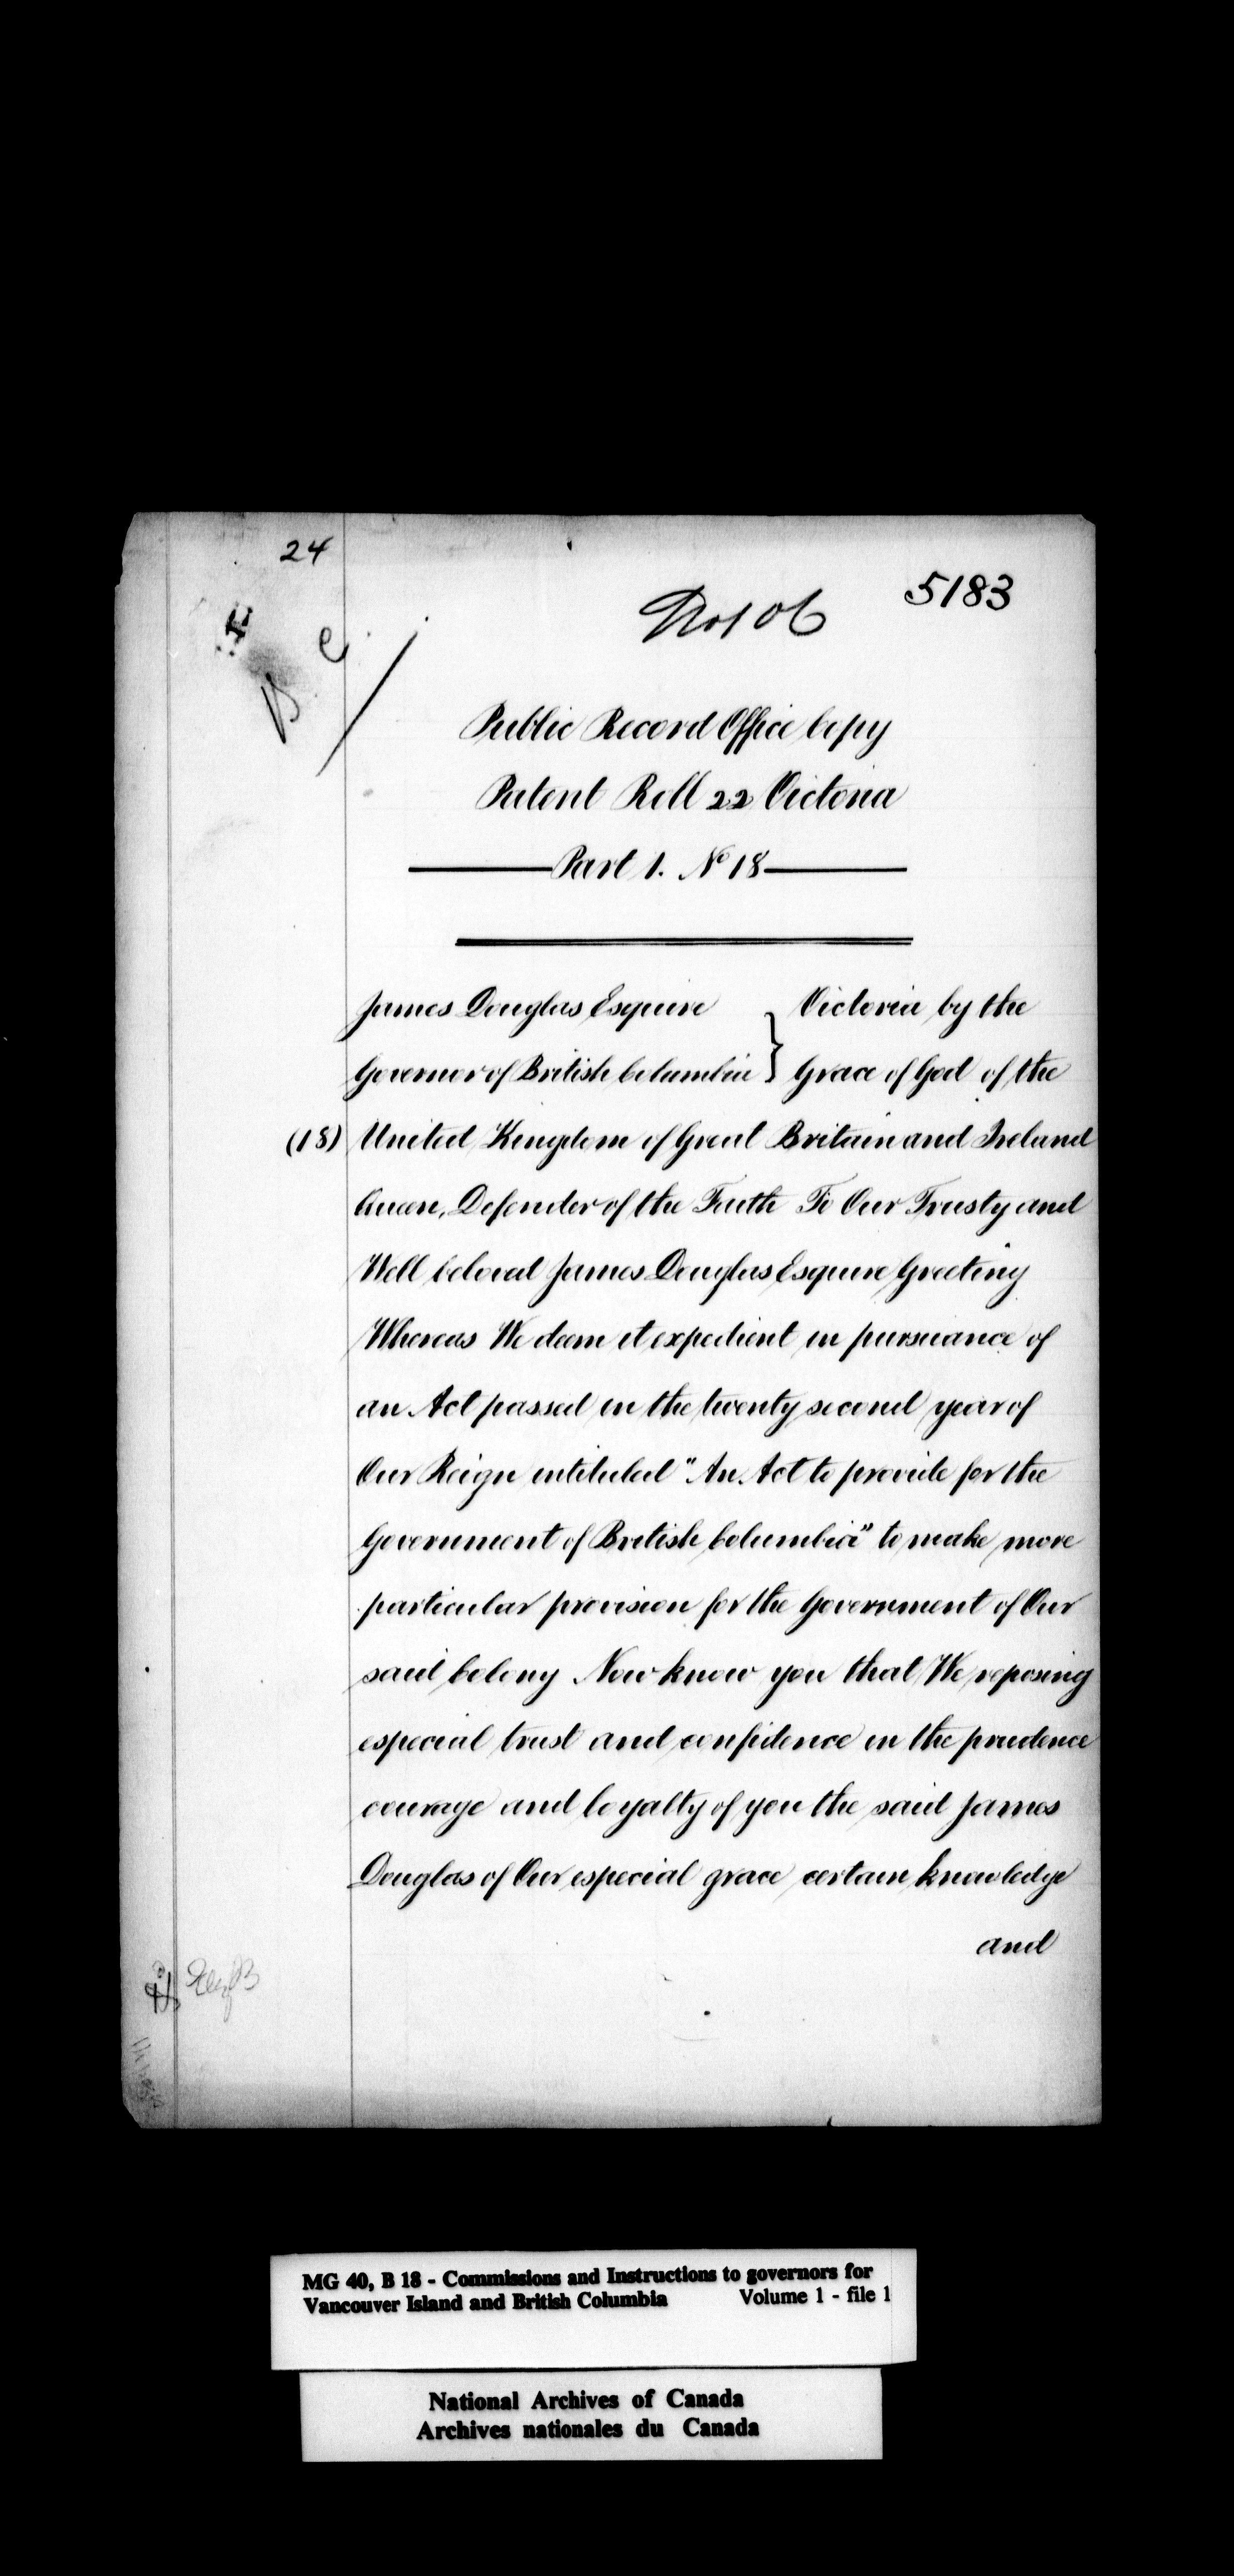 24
5183
B. C.
Public Record Office Copy
Patent Roll 22 Victoria
Part 1. No 18
James Douglas Esquire } Victoria by the
Governor of British Columbia } Grace of God of the
(18) United Kingdom of Great Britain and Ireland
Queen, Defender of the Faith To Our Trusty and
Well beloved James Douglas Esquire Greeting
Whereas We deem it expedient in pursuance of
an Act passed in the twenty second year of
Our Reign intituled "An Act to provide for the
Government of British Columbia" to make more
particular provision for the Government of Our
said Colony Now know you that We reposing
especial trust and confidence in the prudence
courage and loyalty of you the said James
Douglas of Our especial grace certain knowledge
and
MG 40, B 18 - Commissions and Instructions to governors for
Vancouver Island and British Columbia Volume 1 - file 1
National Archives of Canada
Archives nationales du Canada